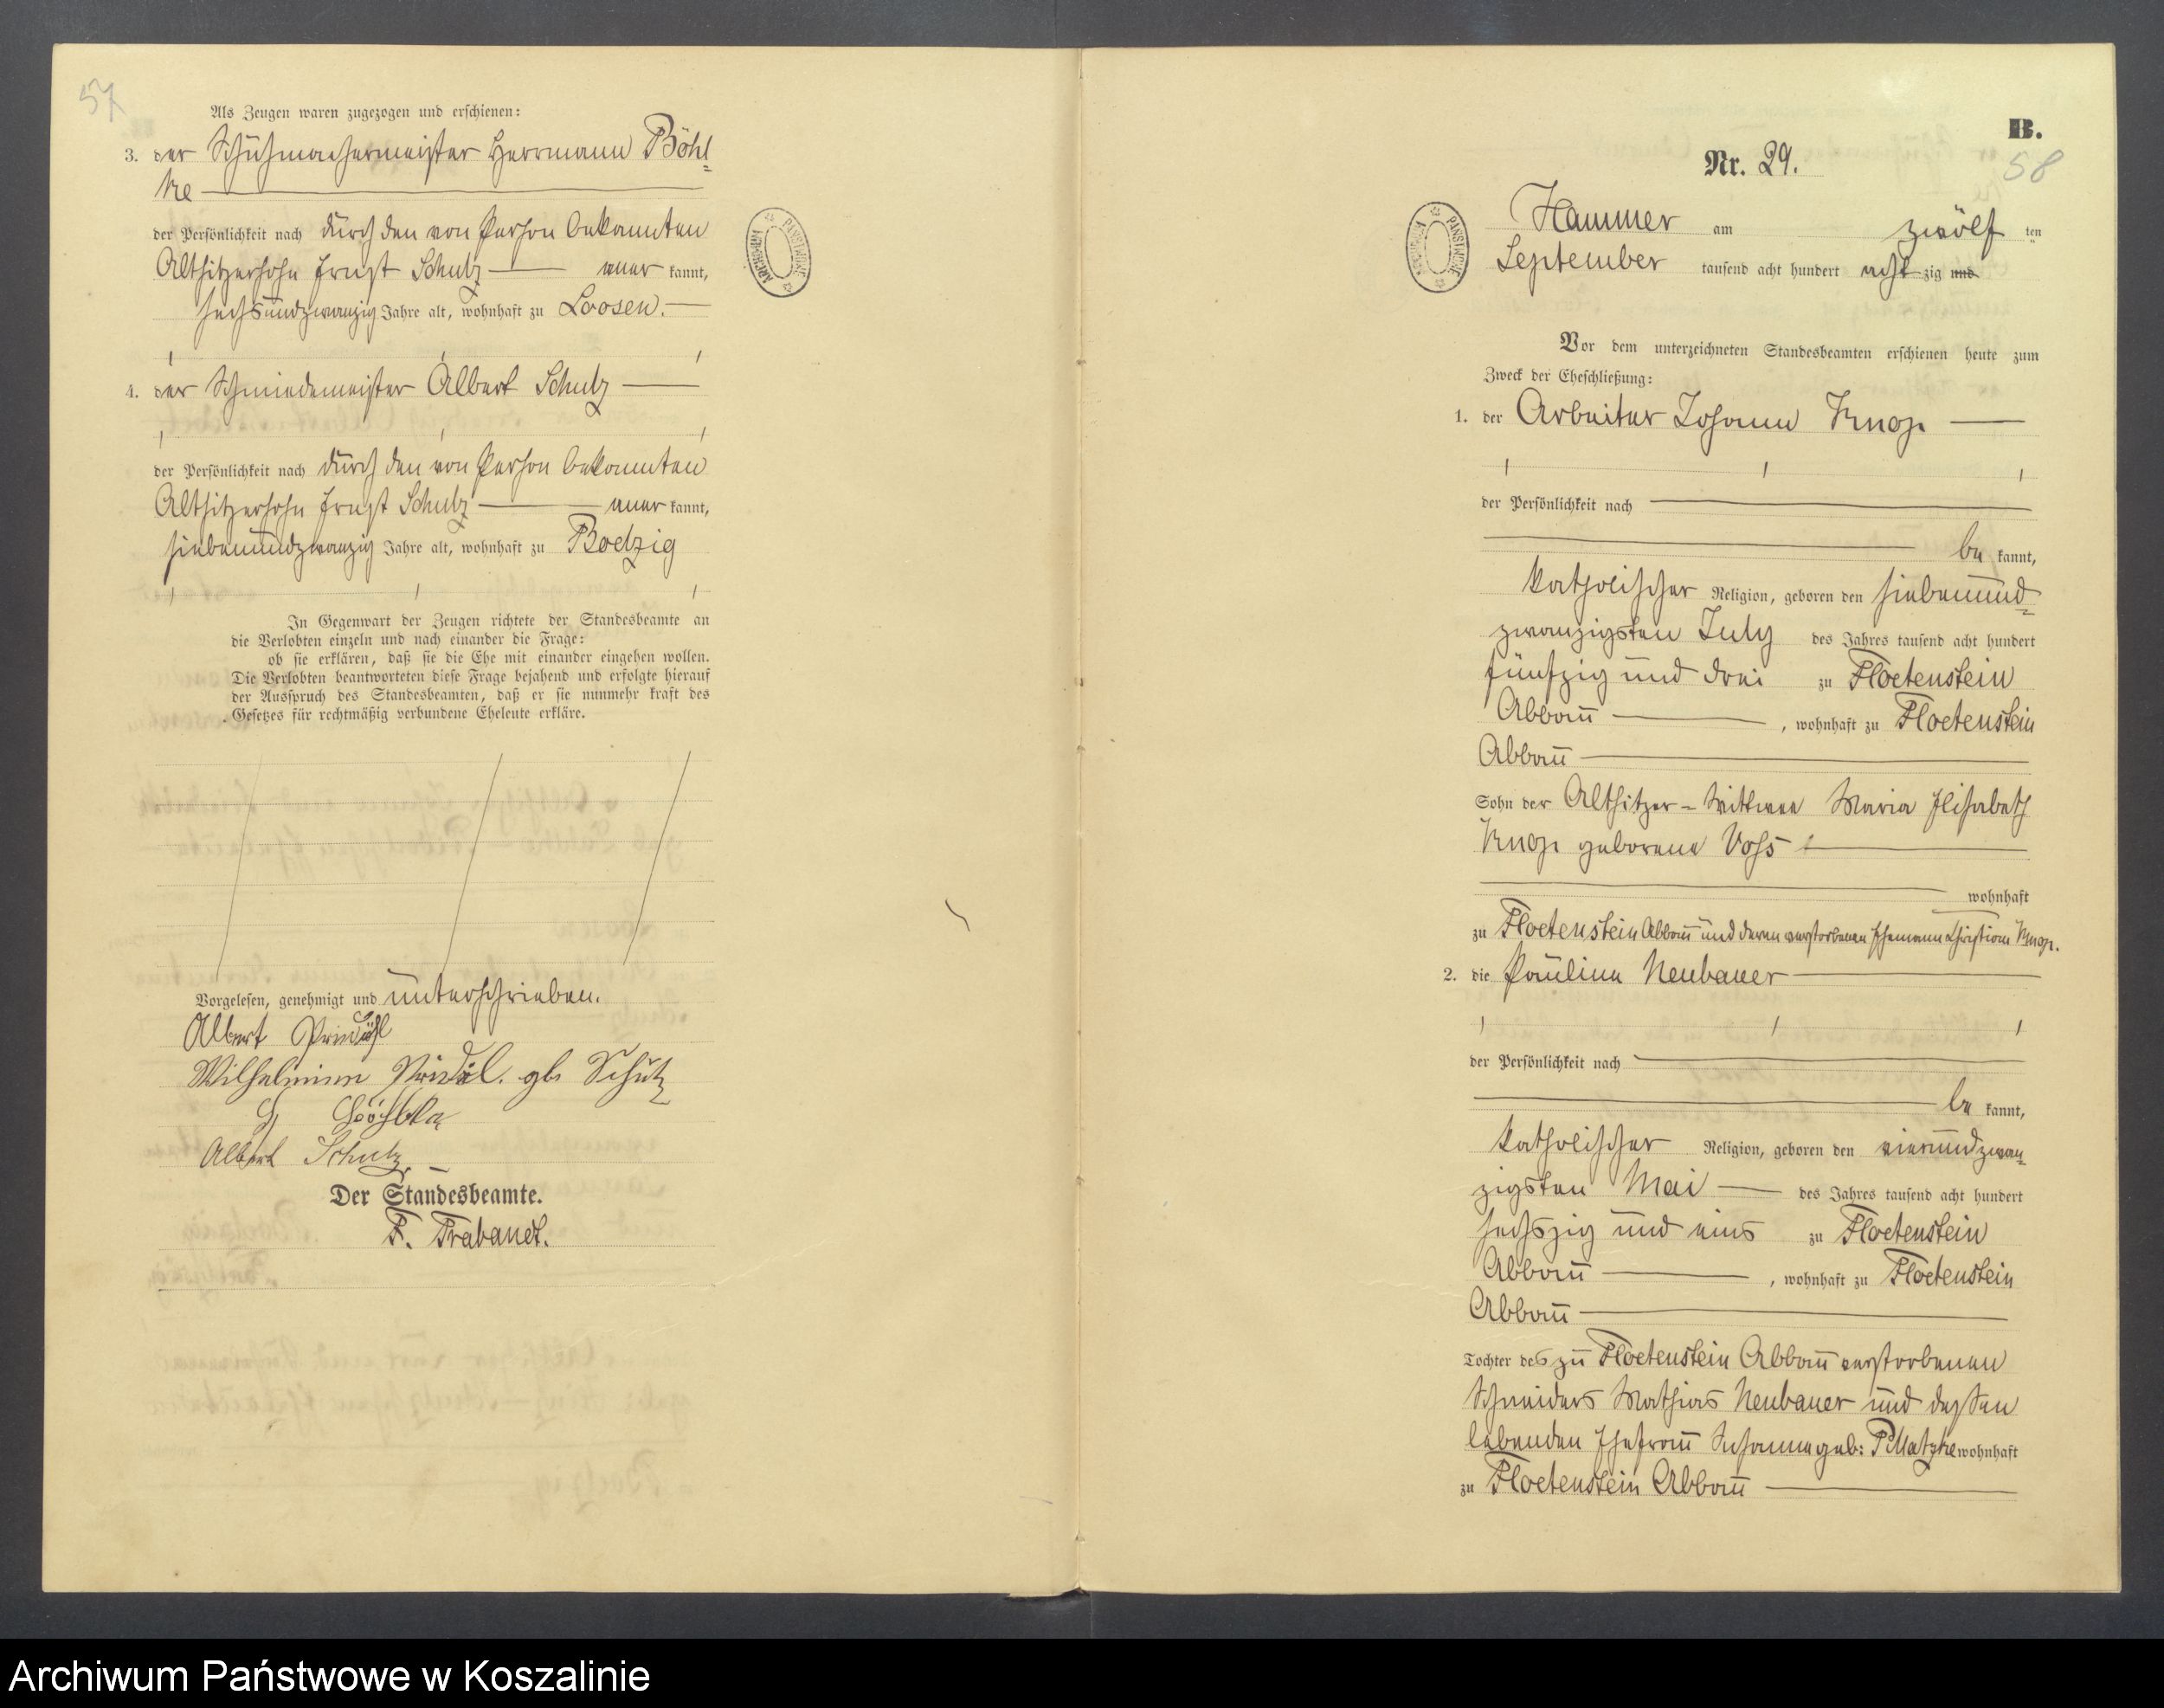 57
Als Zeugen waren zugezogen und erschienen:
3. der Schuhmachermeister Herrmann Böhl=
ke
der Persönlichkeit nach durch den von Person bekannten
Altsitzersohn Ernst Schulz aner kannt,
sechsundzwanzig Jahre alt, wohnhaft zu Loosen.
4. der Schmiedemeister Albert Schulz
der Persönlichkeit nach durch den von Person bekannten
Altsitzersohn Ernst Schulz aner kannt,
siebenundzwanzig Jahre alt, wohnhaft zu
In Gegenwart der Zeugen richtete der Standesbeamte an
die Verlobten einzeln und nach einander die Frage:
ob sie erklären, daß sie die Ehe mit einander eingehen wollen.
Die Verlobten beantworteten diese Frage bejahend und erfolgte hierauf
der Ausspruch des Standesbeamten, daß er sie nunmehr kraft des
Gesetzes für rechtmäßig verbundene Eheleute erkläre.
Vorgelesen, genehmigt und unterschrieben.
Albert
Wilhelmine gb Schulz
Albert Schulz
Der Standesbeamte.
F. Trabandt.
ARCHIWUM PAŃSTWOWE
B.
58
Nr. 29.
ARCHIWUM PAŃSTWOWE
Hammer am zwölf ten
September tausend acht hundert acht zig und
Vor dem unterzeichneten Standesbeamten erschienen heute zum
Zweck der Eheschließung:
1. der Arbeiter Johann Knop
der Persönlichkeit nach
be kannt,
katholischer Religion, geboren den siebenund=
zwanzigsten July des Jahres tausend acht hundert
fünfzig und drei zu Floetenstein
Abbau, wohnhaft zu Floetenstein
Abbau
Sohn der Altsitzer-Wittwee Maria Elisabeth
Knop geborene Voss
wohnhaft
zu Floetenstein Abbau und deren verstorbenen Ehemann Christian Knop.
2. die Pauline Neubauer
der Persönlichkeit nach
be kannt,
katholischer Religion, geboren den vierundzwan=
zigsten Mai des Jahres tausend acht hundert
sechszig und eins zu Floetenstein
Abbau, wohnhaft zu Floetenstein
Abbau
Tochter des zu Floetenstein Abbau verstorbenen
Schneiders Mathias Neubauer und dessen
lebenden Ehefrau Susanne geb: wohnhaft
zu Floetenstein Abbau
Archiwum Państwowe w Koszalinie